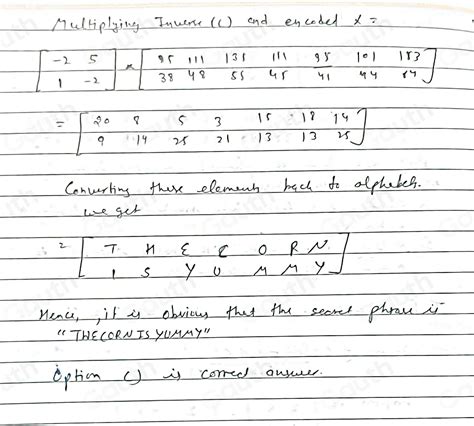 Multiplying Inverse (C) and encoded x =
[-2 5] × [95 111 135 111 95 101 183]
[1 -2] [38 48 55 45 41 44 84]
= [20 8 5 3 15 18 14]
[9 14 25 21 13 13 25]
Converting these elements back to alphabets.
we get
= [T H E C O R N]
[I S Y U M M Y]
Hence, it is obvious that the secret phrase is
"THE CORN IS YUMMY"
Option C) is correct answer.